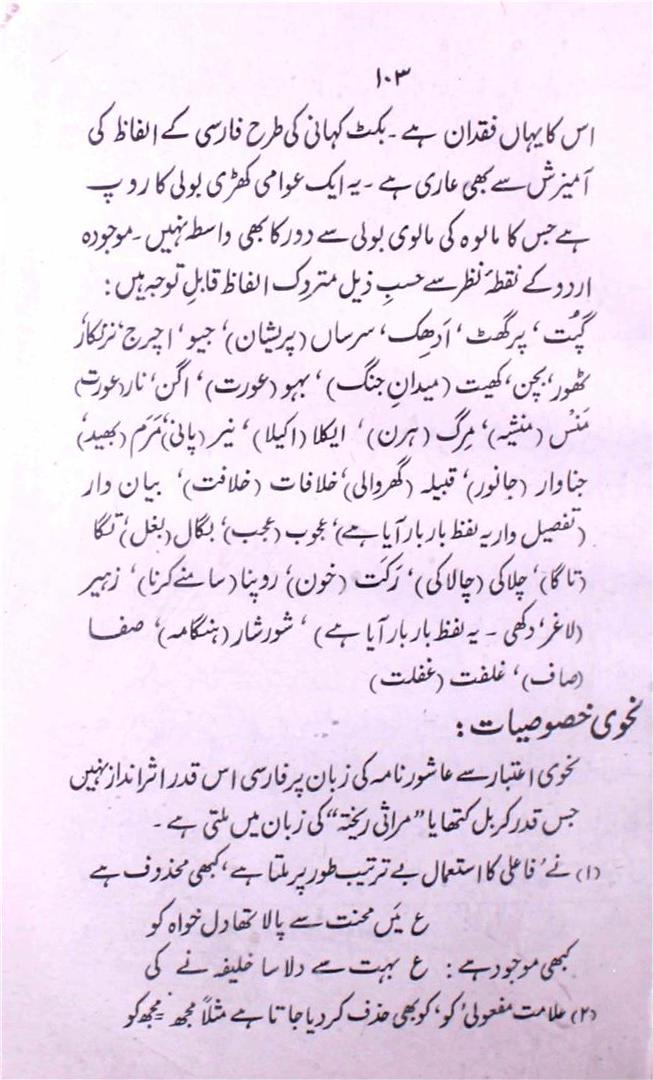 ۱۰۳
اس کا یہاں فقدان ہے ۔ بکٹ کہانی کی طرح فارسی کے الفاظ کی
آمیزش سے بھی عاری ہے ۔ یہ ایک عوامی کھڑی بولی کا روپ
ہے جس کا مالوہ کی مالوی بولی سے دور کا بھی واسطہ نہیں ۔ موجودہ
اردو کے نقطۂ نظر سے حسبِ ذیل متروک الفاظ قابلِ توجہ ہیں :
گپُت ، پرگھٹ ، اَدھِک ، سرساں (پریشان) ، جیو ، اچرج ، نرنکار
ٹھور ، بچن ، کھیت (میدانِ جنگ) ، بہو (عورت) ، اگن ، نار (عورت)
مَنَس (منشیہ) ، مِرگ (ہرن) ، ایکلا (اکیلا) ، نیر (پانی) ، مَرَم (بھید) ،
جناوار (جانور) ، قبیلہ (گھروالی) ، خلافات (خلافت) ، بیان دار
(تفصیل وار یہ لفظ بار بار آیا ہے) ، عجوب (عجب) ، بگال (بغل) ، تگا
(تاگا) ، چلاکی (چالاکی) ، رَکَت (خون) ، روپنا (سامنے کرنا) ، زہیر
(لاغر ، دکھی ۔ یہ لفظ بار بار آیا ہے) ، شورشار (ہنگامہ) ، صفا
(صاف) ، غلفت (غفلت)
نحوی خصوصیات :
نحوی اعتبار سے عاشور نامہ کی زبان پر فارسی اس قدر اثر انداز نہیں
جس قدر کربل کتھا یا ”مراثی ریختہ“ کی زبان میں ملتی ہے ۔
(۱) نے ، فاعلی کا استعمال بے ترتیب طور پر ملتا ہے ، کبھی محذوف ہے
ع میَں محنت سے پالا تھا دل خواہ کو
کبھی موجود ہے : ع بہت سے دلاسا خلیفہ نے کی
(۲) علامت مفعولی ‘کو’ کو بھی حذف کر دیا جاتا ہے مثلاً مجھ = مجھ کو